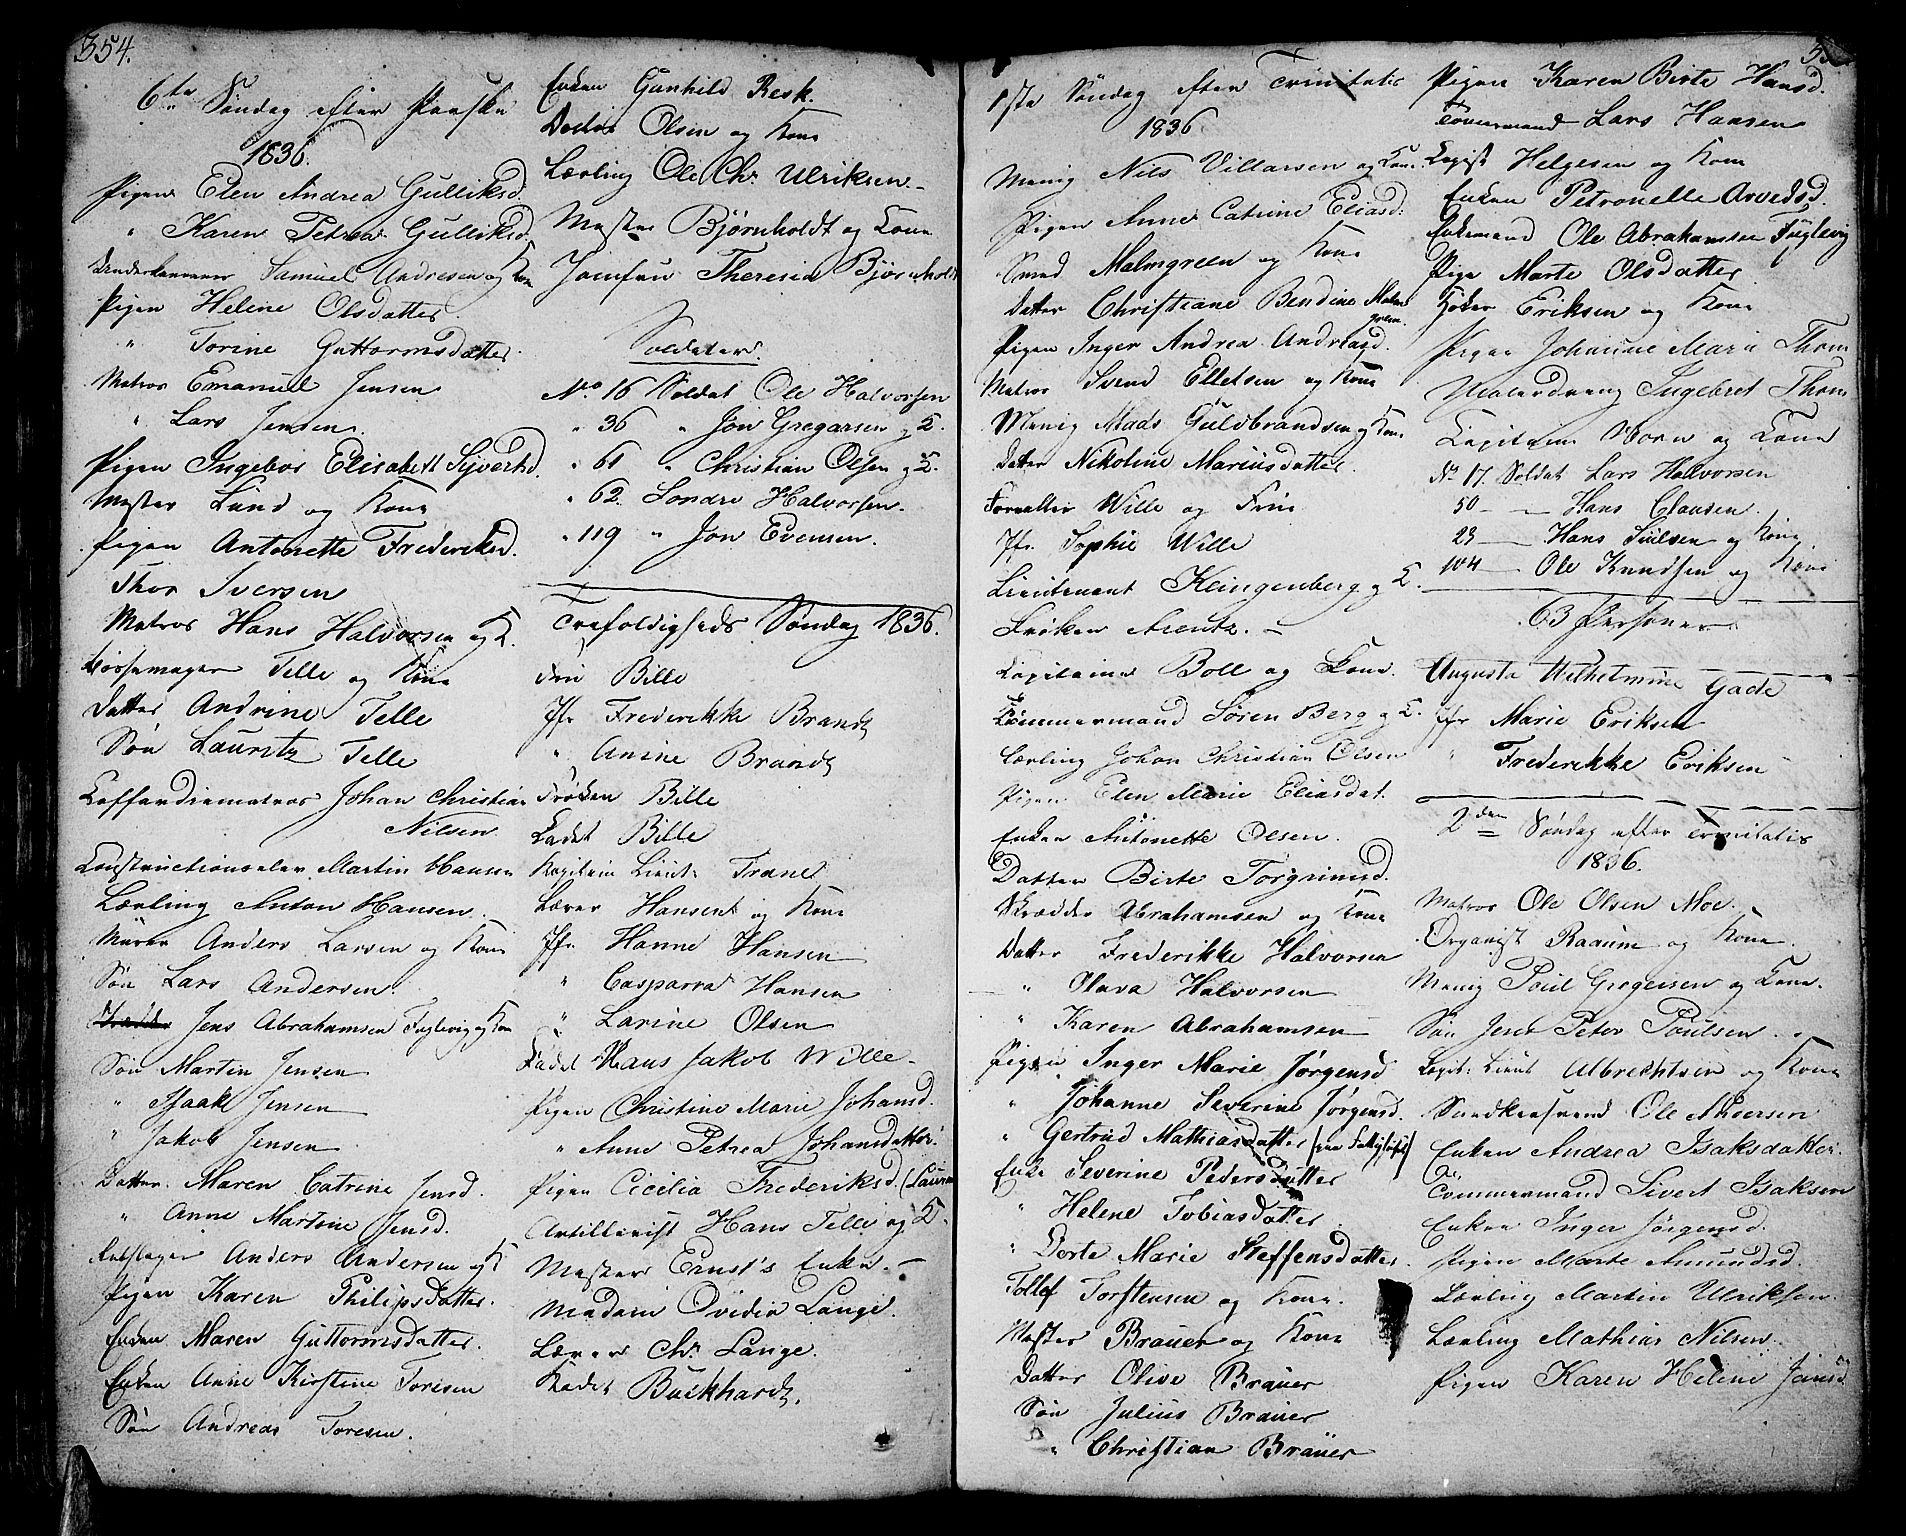 354.
6te Søndag efter Paaske
1836.
Pigen Elen Andrea Gulliksd.
" Karen Petrea Gulliksd.
Underkanoneer Samuel Andresen og Kone
Pigen Helene Olsdatter
" Torine Guttormsdatter.
Matros Emanuel Jensen
" Lars Jensen.
Pigen Ingebor Elisabeth Syvertsd.
Mester Lund og Kone
Pigen Antonette Frederiksd.
Thor Iversen
Matros Hans Halvorsen og K.
Bøssemager Telle og Kone
Datter Andrine Telle
Søn Lauritz Telle
Coffardiematros Johan Christian
Nilsen
Constructionselev Martin Hansen
Lærling Anton Hansen.
Murer Anders Larsen og Kone
Søn Lars Andersen.
Jens Abrahamsen Fuglevig og Kone
Søn Martin Jensen
" Isaak Jensen
" Jakob Jensen
Datter Maren Catrine Jensd.
" Anne Martine Jensd.
Rebslager Anders Andersen og K
Pigen Karen Philipsdatter.
Enken Maren Guttormsdatter.
Enken Anne Kirstine Toresen
Søn Andreas Toresen.
Enken Gunhild Resk.
Olsen og Kone
Lærling Ole Chr. Ulriksen
Mester Bjørnholdt og Kone
Jomfru Theresia Bjørnholdt
Soldater.
No. 16 Soldat Ole Halvorsen
" 36 " Jon Gregarsen og K.
" 61 " Christian Olsen og K.
" 62 Sondre Halvorsen.
" 119 " Jon Evensen.
Trefoldigheds Søndag 1836.
Fru Bille
Jfr Frederikke Brandt
" Anine Brandt
Frøken Bille
Cadet Bille
Kapitain Lieut. Trane
Lærer Hansen og Kone
Jfr. Hanne Hansen
" Casparra Hansen
" Larine Olsen
Cadet Hans Jakob Wille
Pigen Christine Marie Johansd.
" Anne Petrea Johansdatter.
Pigen Cicilia Frederiksd.
Artillerist Hans Telle og K.
Mester Ernst's Enke.
Madam Ovidia Lange.
Lærer Chr. Lange.
Kadet Burkhardt.
1ste Søndag efter Trinitatis
1836.
Menig Nils Villarsen og Kone
Pigen Anne Catrine Eliasd:
Smed Malmgreen og Kone
Datter Christiane Bendine Malm
green.
Pigen Inger Andrea Andreasd.
Matros Svend Elletsen og Kone
Menig Mads Guldbrandsen og Kone
Datter Nikoline Mariusdatter.
Forvalter Wille og Frue
Jfr. Sophie Wille
Lieutenant Klingenberg og K.
Frøken Arentz.
Capitaine Boll og Kone.
Tømmermand Søren Berg og K.
Lærling Johan Christian Olsen
Pigen Elen Marie Eliasdat.
Enken Antonette Olsen.
Datter Birte Torgrimsd.
Skrædder Abrahamsen og Kone
Datter Frederikke Halvorsen
" Olava Halvorsen
" Karen Abrahamsen
Pigen Inger Marie Jørgensd
" Johanne Severine Jørgensd.
" Gertrud Mathiasdatter
Enke Severine Pedersdatter
" Helene Tobiasdatter
" Dorte Marie Steffensdatter.
Tollef Torstensen og Kone.
Mester Brauer og Kone
Datter Olive Brauer
Søn Julius Brauer
" Christian Brauer
Pigen Karen Birte Hansd.
Tømmermand Lars Hansen
Helgesen og Kone
Enken Petronelle Arvedsd.
Enkemand Ole Abrahamsen Fuglevig
Pige Marte Olsdatter
Eriksen og Kone
Pigen Johanne Marie Thom
Malerdreng Ingebret Thom
Capitain Worn og Kone
No 17. Soldat Lars Halvorsen
50 — Hans Clausen.
23 — Hans Juelsen og Kone
104 — Ole Knudsen og Kone
63 Personer.
Augusta Wilhelmine Gade
Jfr Marie Eriksen
" Frederikke Eriksen
2den Søndag efter Trinitatis
1836.
Matros Ole Olsen Moe.
Organist Raaum og Kone.
Menig Poul Gregersen og Kone.
Søn Jens Peter Poulsen.
Capit. Lieut Albrechtsen og Kone
Ole Andersen
Enken Andrea Isaksdatter.
Tømmermand Sivert Isaksen
Enken Inger Jørgensd.
Pigen Marte Amundsd.
Lærling Martin Ulriksen.
Lærling Mathias Nilsen.
Pigen Karen Helene Jensd